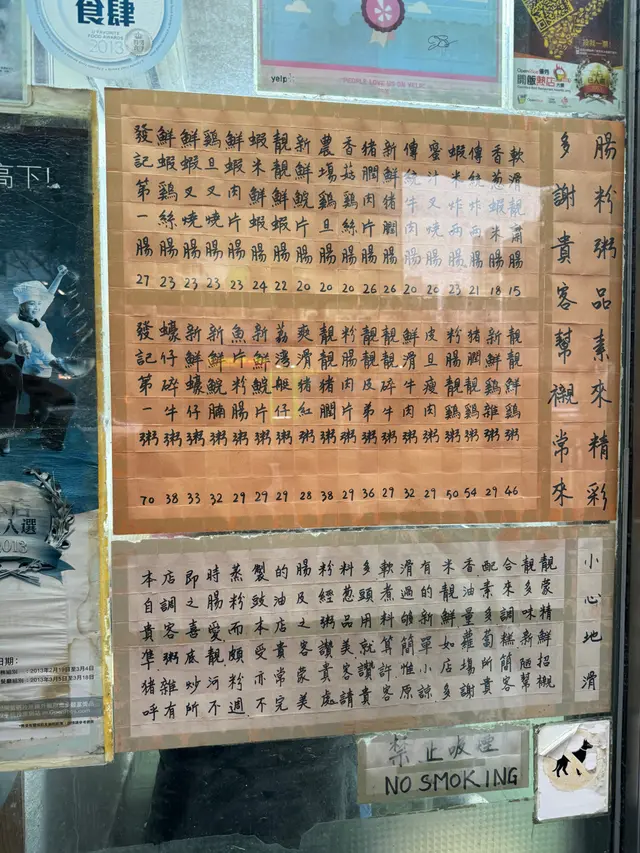 食肆
U FAVORITE FOOD AWARDS
2013
yelp
PEOPLE LOVE US ON YELP
開飯熱店
高下!
入選
2013
腸粉粥品素來精彩
多謝貴客幫襯常來
軟滑靚齋腸 15
香葱蝦米腸 18
傳統炸兩腸 21
蝦米炸兩腸 23
蜜汁叉燒腸 20
傳統牛肉腸 20
新鮮豬膶腸 26
豬膶肉片腸 26
香菇鷄絲腸 20
農塲鷄旦腸 20
新鮮鯇片腸 20
靚靚鮮蝦腸 22
蝦米鮮蝦腸 24
鮮蝦肉片腸 23
鷄旦叉燒腸 23
鮮蝦叉燒腸 23
鮮蝦鷄絲腸 23
發記第一腸 27
靚靚鮮鷄粥 46
新鮮豬雜粥 29
豬膶靚鷄粥 54
粉腸靚鷄粥 50
皮旦瘦肉粥 29
鮮滑牛肉粥 32
靚靚碎牛粥 29
靚靚及弟粥 36
粉腸肉片粥 29
靚靚豬膶粥 38
爽滑豬紅粥 28
荔灣艇仔粥 29
新鮮鯇片粥 29
魚片粉腸粥 29
新鮮鯇腩粥 32
新鮮蠔仔粥 33
蠔仔碎牛粥 38
發記第一粥 70
本店即時蒸製的腸粉料多軟滑有米香配合靚靚
自調之腸粉豉油及經葱頭煮過的靚油素來多蒙
貴客喜愛而本店之粥品用料夠新鮮量多調味精
準粥底靚頗受貴客讚美就算簡單如蘿蔔糕新鮮
豬雜炒河粉亦常蒙貴客讚許惟小店場所簡陋招
呼有所不週不完美處請貴客原諒多謝貴客幫襯
小心地滑
禁止吸煙
NO SMOKING